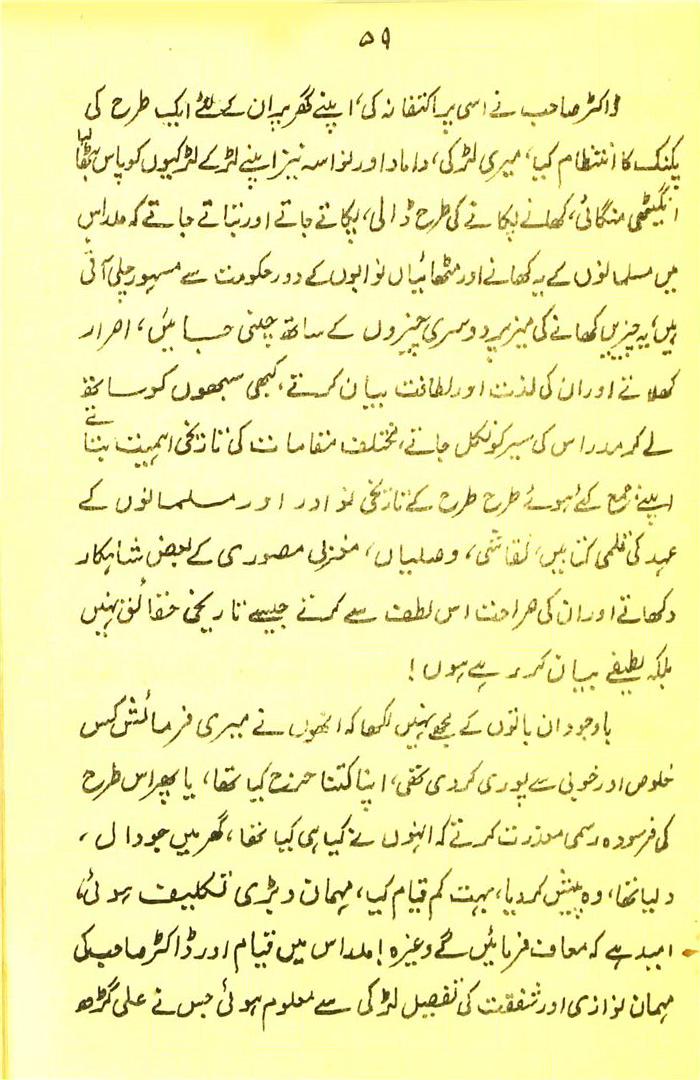 ۵۹
ڈاکٹر صاحب نے اسی پر اکتفا نہ کی، اپنے گھر پر ان کے لئے ایک طرح کی
پکنک کا انتظام کیا، میری لڑکی، داماد اور نواسہ نیز اپنے لڑکے لڑکیوں کو پاس بٹھا لیا
انگیٹھی منگائی، کھانے پکانے کی طرح ڈالی، پکاتے جاتے اور بتاتے جاتے کہ مدراس
میں مسلمانوں کے یہ کھانے اور مٹھائیاں نوابوں کے دور حکومت سے مشہور چلی آتی
ہیں، یہ چیزیں کھانے کی میز پر دوسری چیزوں کے ساتھ چلنی جاتیں، اصرار
کھلاتے اور ان کی لذت اور لطافت بیان کرتے، کبھی سبھوں کو ساتھ
لے کر مدراس کی سیر کو نکل جاتے، مختلف مقامات کی تاریخی اہمیت بتاتے
اپنے جمع کئے ہوئے طرح طرح کے تاریخی نوادر اور مسلمانوں کے
عہد کی قلمی کتابیں، نقاشی، وصلیاں، مغربی مصوری کے بعض شاہکار
دکھاتے اور ان کی صراحت اس لطف سے کرتے جیسے تاریخی حقائق نہیں
بلکہ لطیفے بیان کر رہے ہوں!
باوجود ان باتوں کے مجھے نہیں لکھا کہ انھوں نے میری فرمائش کس
خلوص اور خوبی سے پوری کر دی تھی، اپنا کتنا حرج کیا تھا، یا پھر اس طرح
کی فرسودہ رسمی معذرت کرتے کہ انہوں نے کیا ہی کیا تھا، گھر میں جو دال،
دلیا تھا، وہ پیش کر دیا، بہت کم قیام کیا، مہمان و بڑی تکلیف ہوئی،
امید ہے کہ معاف فرمائیں گے وغیرہ! مدراس میں قیام اور ڈاکٹر صاحب کی
مہمان نوازی اور شفقت کی تفصیل لڑکی سے معلوم ہوئی جس نے علی گڑھ